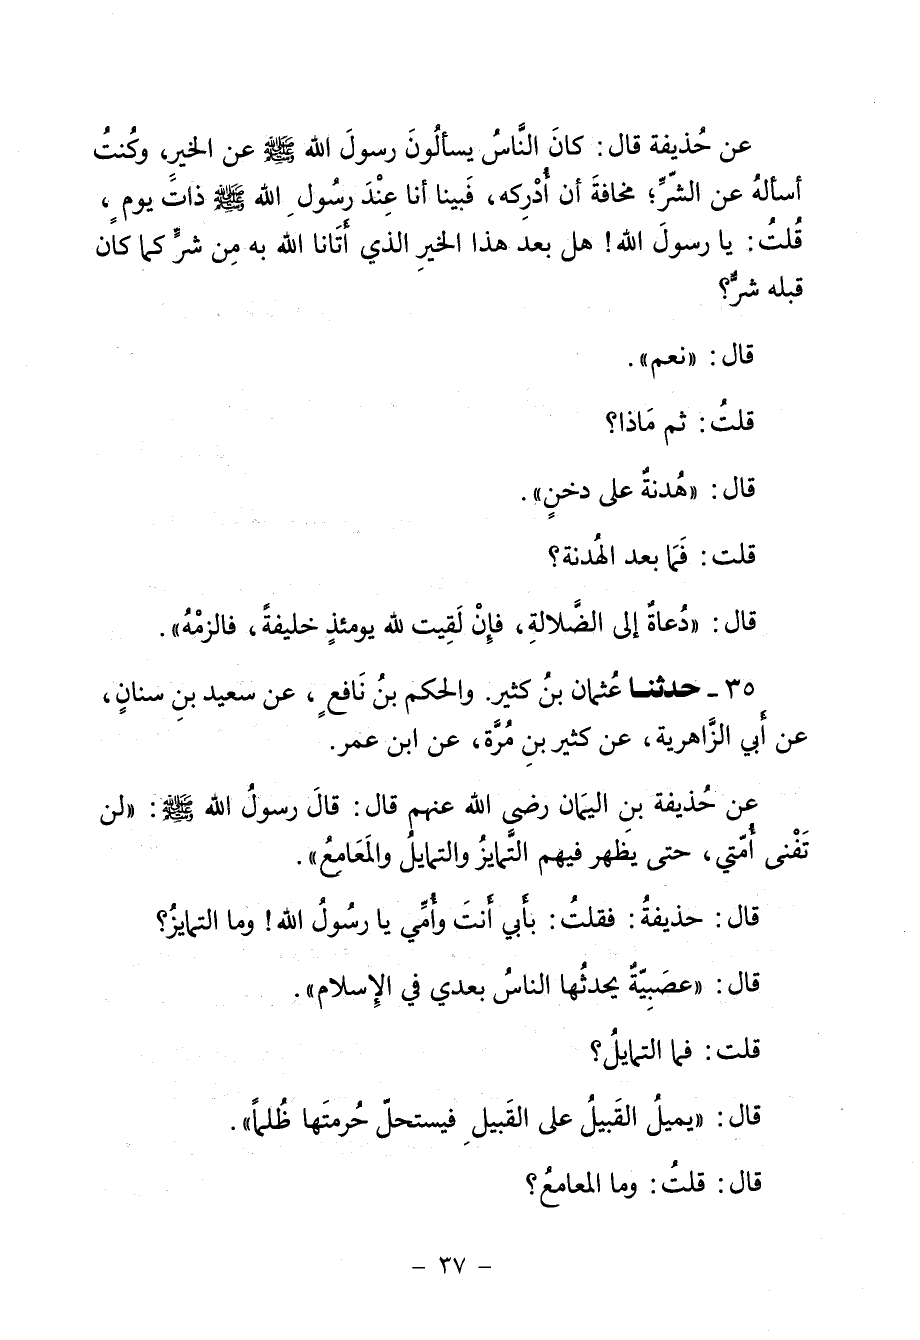 عن حُذيفة قال: كانَ النَّاسُ يسألُونَ رسولَ الله ﷺ عن الخيرِ، وكُنتُ
أسألهُ عن الشرِّ؛ مخافةَ أن أُدْرِكه، فَبينا أنا عِنْدَ رسُولِ الله ﷺ ذاتَ يومٍ،
قُلتُ: يا رسولَ الله! هل بعد هذا الخيرِ الذي أَتَانا الله به مِن شرٍّ كما كان
قبله شرٌّ؟
قال: «نعم».
قلتُ: ثم مَاذا؟
قال: «هُدنةٌ على دخنٍ».
قلت: فَمَا بعد الهُدنة؟
قال: «دُعاةٌ إلى الضَّلالةِ، فإِنْ لَقِيت لله يومئذٍ خليفةً، فالزمْهُ».
٣٥ ـ حدثنا عُثمان بنُ كثير. والحكم بنُ نَافعٍ، عن سعيد بنِ سنانٍ،
عن أَبي الزَّاهرية، عن كثير بنِ مُرَّة، عن ابن عمر.
عن حُذيفة بنِ اليمَان رضي الله عنهم قال: قالَ رسولُ الله ﷺ: «لن
تَفْنى أُمّتي، حتى يظهر فيهم التَّمايزُ والتمايلُ والمَعَامِعُ».
قال: حذيفةُ: فقلتُ: بأَبي أَنتَ وأُمِّي يا رسُولُ الله! وما التمايزُ؟
قال: «عصَبِيّةٌ يحدثُها الناسُ بعدي في الإِسلام».
قلت: فما التمايلُ؟
قال: «يميلُ القَبيلُ على القَبيلِ فيستحلّ حُرمتَها ظُلماً».
قال: قلتُ: وما المعامعُ؟
- ٣٧ -